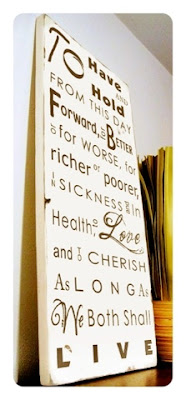 To Have
AND
Hold
FROM THIS DAY
Forward, FOR BETTER
OR for WORSE, for
richer OR poorer,
IN SICKNESS AND IN
Health, TO Love
and TO CHERISH
AS LONG AS
We Both Shall
LIVE